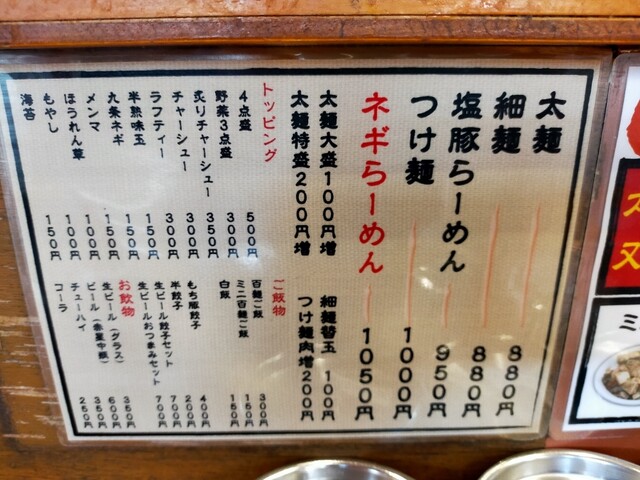 太麺 880円
細麺 880円
塩豚らーめん 950円
つけ麺 1000円
ネギらーめん 1050円
太麺大盛100円増
太麺特盛200円増
細麺替玉 100円
つけ麺肉増200円
トッピング
4点盛 500円
野菜3点盛 300円
炙りチャーシュー 350円
チャーシュー 300円
ラフティー 300円
半熟味玉 150円
九条ネギ 150円
メンマ 150円
ほうれん草 100円
もやし 100円
海苔 150円
ご飯物
百麺ご飯 300円
ミニ百麺ご飯 150円
白飯 150円
もち豚餃子 400円
半餃子 200円
生ビール餃子セット 700円
生ビールおつまみセット 700円
お飲物
生ビール(グラス) 350円
ビール(赤星中瓶) 600円
チューハイ 350円
コーラ 250円
ミ